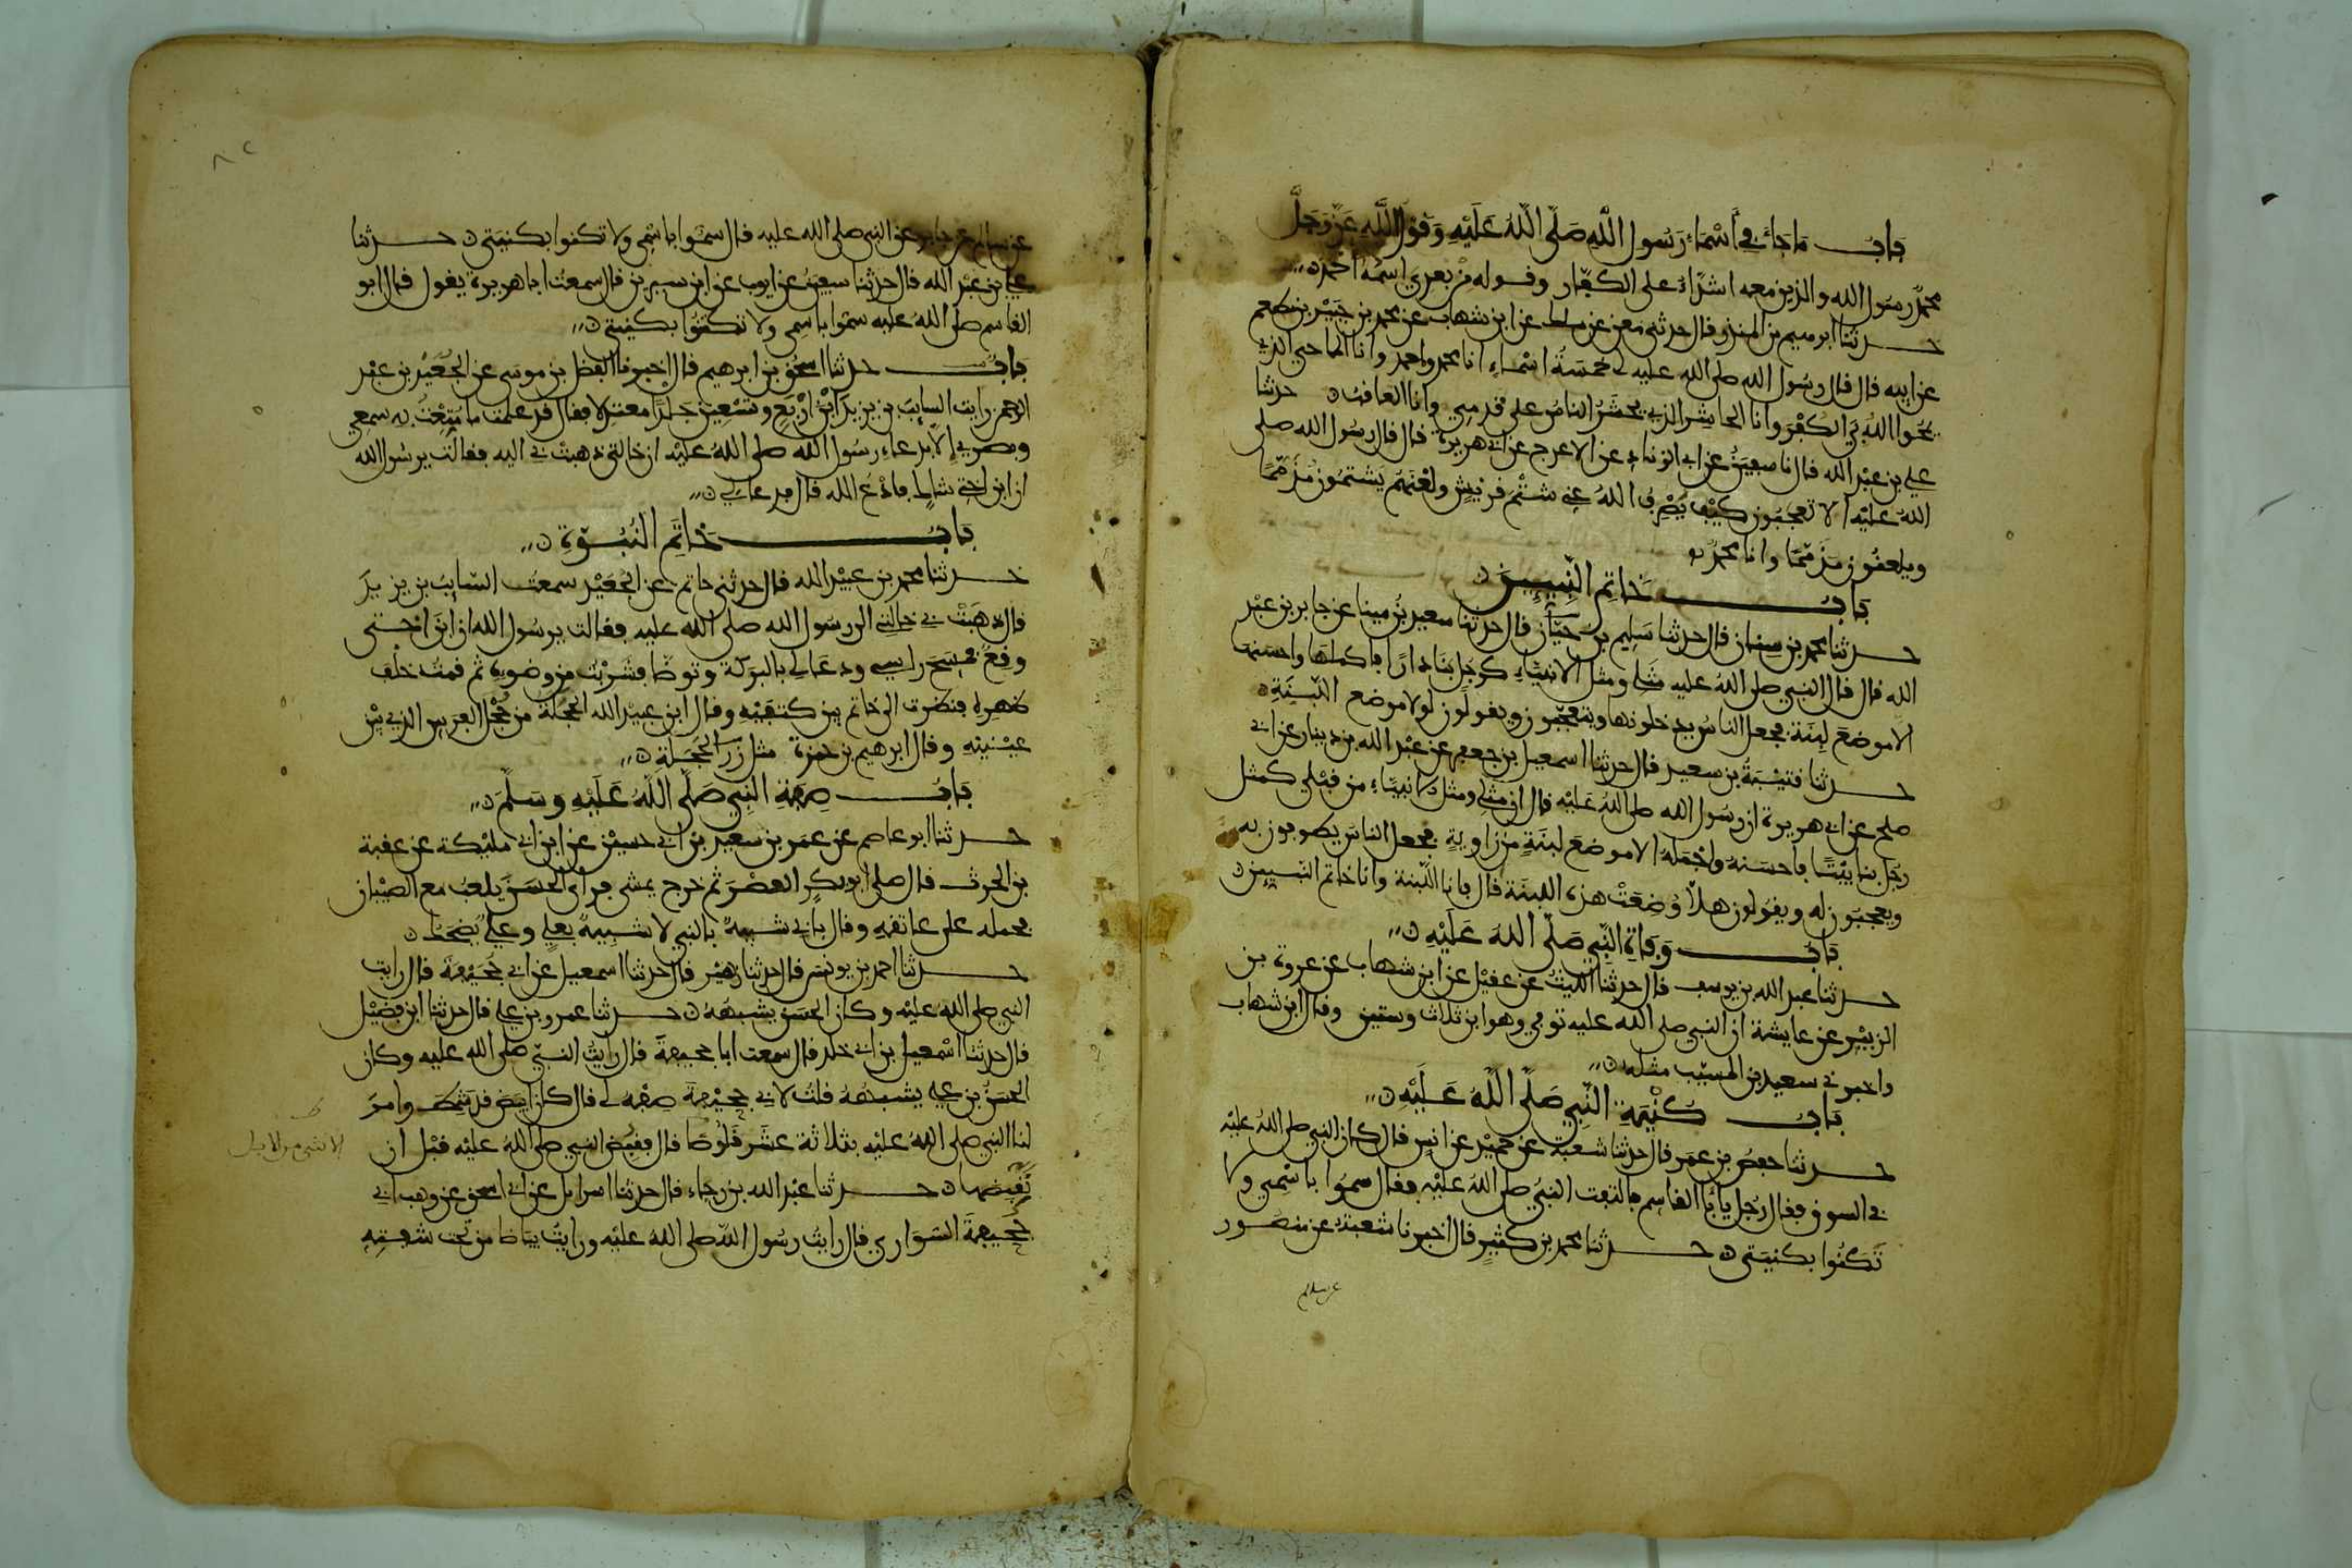 باب ما جاء في أسماء رسول الله صلى الله عليه وقول الله عز وجل
محمد رسول الله والذين معه اشداء على الكفار وقوله من بعدي اسمه احمد
حدثنا ابرهيم بن المنذر قال حدثني معن عن ملك عن ابن شهاب عن محمد بن جبير بن مطعم
عن ابيه قال قال رسول الله صلى الله عليه لي خمسة اسماء انا محمد واحمد وانا الماحي الذي
يمحوا الله بي الكفر وانا الحاشر الذي يحشر الناس على قدمي وانا العاقب حدثنا
علي بن عبد الله قال نا سفين عن ابي الزناد عن الاعرج عن ابي هريرة قال قال رسول الله صلى
الله عليه الا تعجبون كيف يصرف الله عني شتم قريش ولعنهم يشتمون مذمما
ويلعنون مذمما وانا محمد
باب خاتم النبيين
حدثنا محمد بن سنان قال حدثنا سليم بن حيان قال حدثنا سعيد بن مينا عن جابر بن عبد
الله قال قال النبي صلى الله عليه مثلي ومثل الانبياء كرجل بنا دارا فاكملها واحسنها
الا موضع لبنة فجعل الناس يدخلونها ويتعجبون ويقولون لولا موضع اللبنة
حدثنا قتيبة بن سعيد قال حدثنا اسمعيل بن جعفر عن عبد الله بن دينار عن ابي
صلح عن ابي هريرة ان رسول الله صلى الله عليه قال ان مثلي ومثل الانبياء من قبلي كمثل
رجل بنا بيتا فاحسنه واجمله الا موضع لبنة من زاوية فجعل الناس يطوفون به
ويعجبون له ويقولون هلا وضعت هذه اللبنة قال فانا اللبنة وانا خاتم النبيين
باب وفاة النبي صلى الله عليه
حدثنا عبد الله بن يوسف قال حدثنا الليث عن عقيل عن ابن شهاب عن عروة بن
الزبير عن عايشة ان النبي صلى الله عليه توفي وهو ابن ثلاث وستين وقال ابن شهاب
واخبرني سعيد بن المسيب مثله
باب كنية النبي صلى الله عليه
حدثنا حفص بن عمر قال حدثنا شعبة عن حميد عن انس قال كان النبي صلى الله عليه
في السوق فقال رجل يا با القاسم فالتفت النبي صلى الله عليه فقال سموا باسمي ولا
تكنوا بكنيتي حدثنا محمد بن كثير قال اخبرنا شعبة عن منصور
عن سالم
عن سالم عن جابر عن النبي صلى الله عليه قال سموا باسمي ولا تكنوا بكنيتي حدثنا
علي بن عبد الله قال حدثنا سفين عن ايوب عن ابن سيرين قال سمعت ابا هريرة يقول قال ابو
القاسم صلى الله عليه سموا باسمي ولا تكتنوا بكنيتي
باب حدثنا اسحق بن ابرهيم قال اخبرنا الفضل بن موسى عن الجعيد بن عبد
الرحمن رايت السايب بن يزيد ابن اربع وتسعين جلدا معتدلا فقال قد علمت ما متعت به سمعي
وبصري الا بدعاء رسول الله صلى الله عليه ان خالتي ذهبت بي اليه فقالت يرسول الله
ان ابن اختي شاك فادع الله قال فدعا لي
باب خاتم النبوة
حدثنا محمد بن عبيد الله قال حدثني حاتم عن الجعيد سمعت السايب بن يزيد
قال ذهبت بي خالتي الى رسول الله صلى الله عليه فقالت يرسول الله ان ابن اختي
وقع فمسح راسي ودعا لي بالبركة وتوضا فشربت من وضويه ثم قمت خلف
ظهره فنظرت الى خاتم بين كتفيه وقال ابن عبيد الله الحجلة من حجل الفرس الذي بين
عينيه وقال ابرهيم بن حمزة مثل زر الحجلة
باب صفة النبي صلى الله عليه وسلم
حدثنا ابو عاصم عن عمر بن سعيد بن ابي حسين عن ابن ابي مليكة عن عقبة
بن الحرث قال صلى ابو بكر العصر ثم خرج يمشي فراى الحسن يلعب مع الصبيان
فحمله على عاتقه وقال بابي شبيه بالنبي لا شبيه بعلي وعلي يضحك
حدثنا احمد بن يونس قال حدثنا زهير قال حدثنا اسمعيل عن ابي جحيفة قال رايت
النبي صلى الله عليه وكان الحسن يشبهه حدثنا عمرو بن علي قال حدثنا ابن فضيل
قال حدثنا اسمعيل بن ابي خلد قال سمعت ابا جحيفة قال رايت النبي صلى الله عليه وكان
الحسن بن علي يشبهه قلت لابي جحيفة صفه لي قال كان ابيض قد شمط وامر
لنا النبي صلى الله عليه بثلاثة عشر قلوصا قال فقبض النبي صلى الله عليه قبل ان
الانثى من الابل
نقبضها حدثنا عبد الله بن رجاء قال حدثنا اسرايل عن ابي اسحق عن وهب ابي
جحيفة السوايي قال رايت رسول الله صلى الله عليه ورايت بياضا من تحت شفته